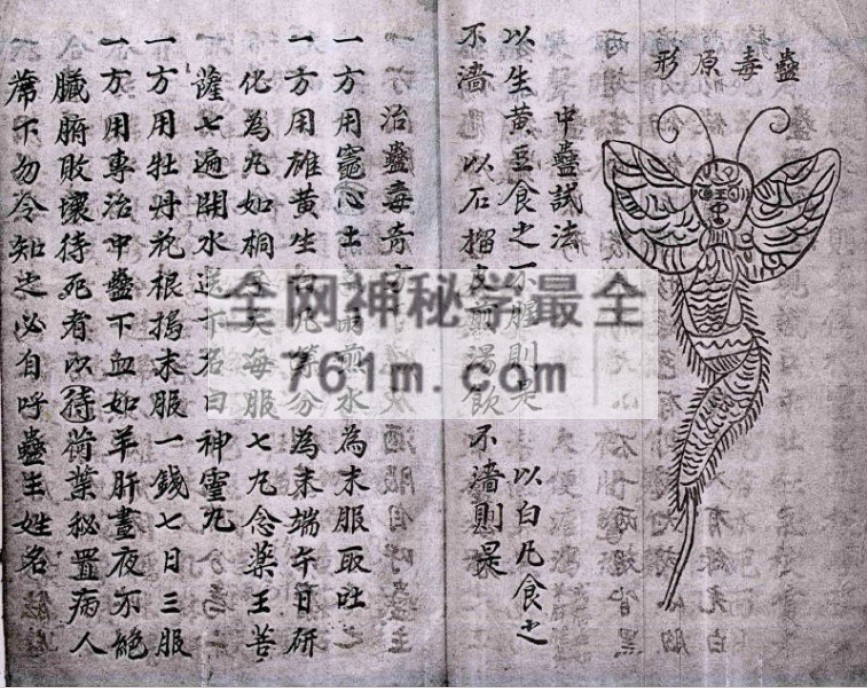 蠱毒原形
中蠱試法
以生黄豆食之不腥則是 以白凡食之
不濇 以石榴皮煎湯飲 不濇則是
治蠱毒奇方
一方用竈心土煎水為末服取吐
一方用雄黄生白凡等分為末端午日研
化為丸如桐子大每服七丸念藥王菩
薩七遍開水送下名曰神靈丸
一方用牡丹花根搗末服一錢七日三服
一方用專治中蠱下血如羊肝晝夜不絶
臟腑敗壞待死者以待荷葉秘置病人
蓆下勿令知之必自呼蠱主姓名
全网神秘学最全
761m.com